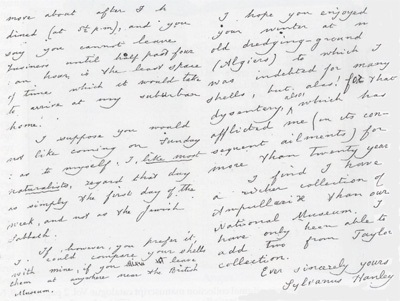 more about after I
dined (at 5½ p.m), and: you
say you cannot leave
business until half past four
: an hour is the least space
of time which it would take
to arrive at my suburban
home.
I suppose you would
not like coming on Sunday
: as to myself, I, like most
naturalists, regard that day
as simply the first day of the
week, and not as the Jewish
Sabbath.
If, however, you prefer it,
I could compare your shells
with mine, if you leave
them at anywhere near the British
Museum.
I hope you enjoyed
your winter at
old dredging-ground
(Algiers) to which I
was indebted for many
shells, but, alas! for that
dysentery, also which has
afflicted me (in its con-
sequent ailments) for
more than twenty years
I find I have
a richer collection of
Ampullariæ than our
National Museum. I
have only been able to
add two from Taylor
collection.
Ever sincerely yours
Sylvanus Hanley